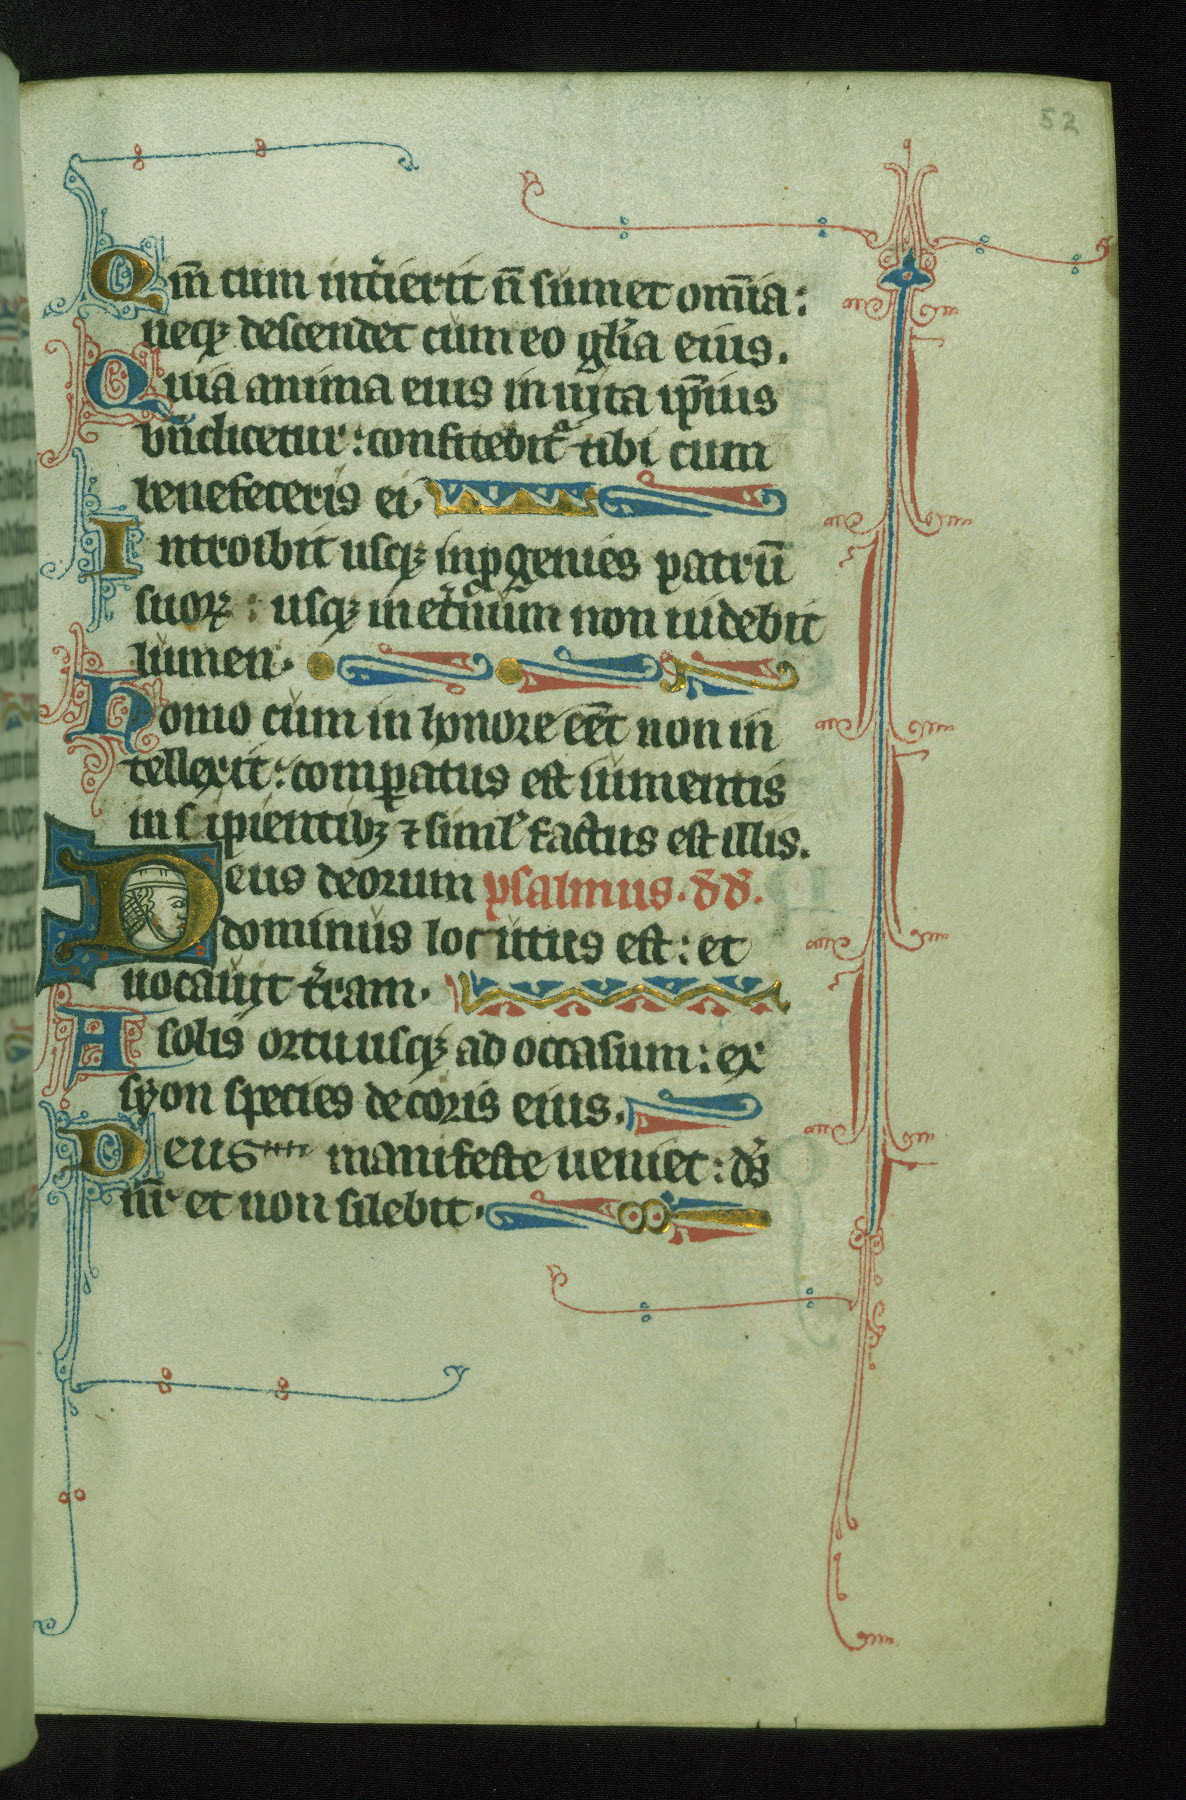 52
Qm̄ cum int̉ierit n̄ sumet om̄ia:
neqꝫ descendet cum eo gl̉ia eius.
Quia anima eius in uita ip̄ius
bn̄dicetur: confitebit᷑ tibi cum
benefeceris ei.
Introibit usqꝫ in ꝓgenies patrū
suoꝝ: usqꝫ in et̉num non uidebit
lumen.
Homo cum in honore eēt non in
tellexit: comꝑatus est iumentis
insipientibꝫ ⁊ simil̉ factus est illis.
Deus deorum psalmus. dd̄.
dominus locutus est: et
uocauit t̉ram.
A solis ortu usqꝫ ad occasum: ex
syon species decoris eius.
Deus manifeste ueniet: ds̄
nr̄ et non silebit.